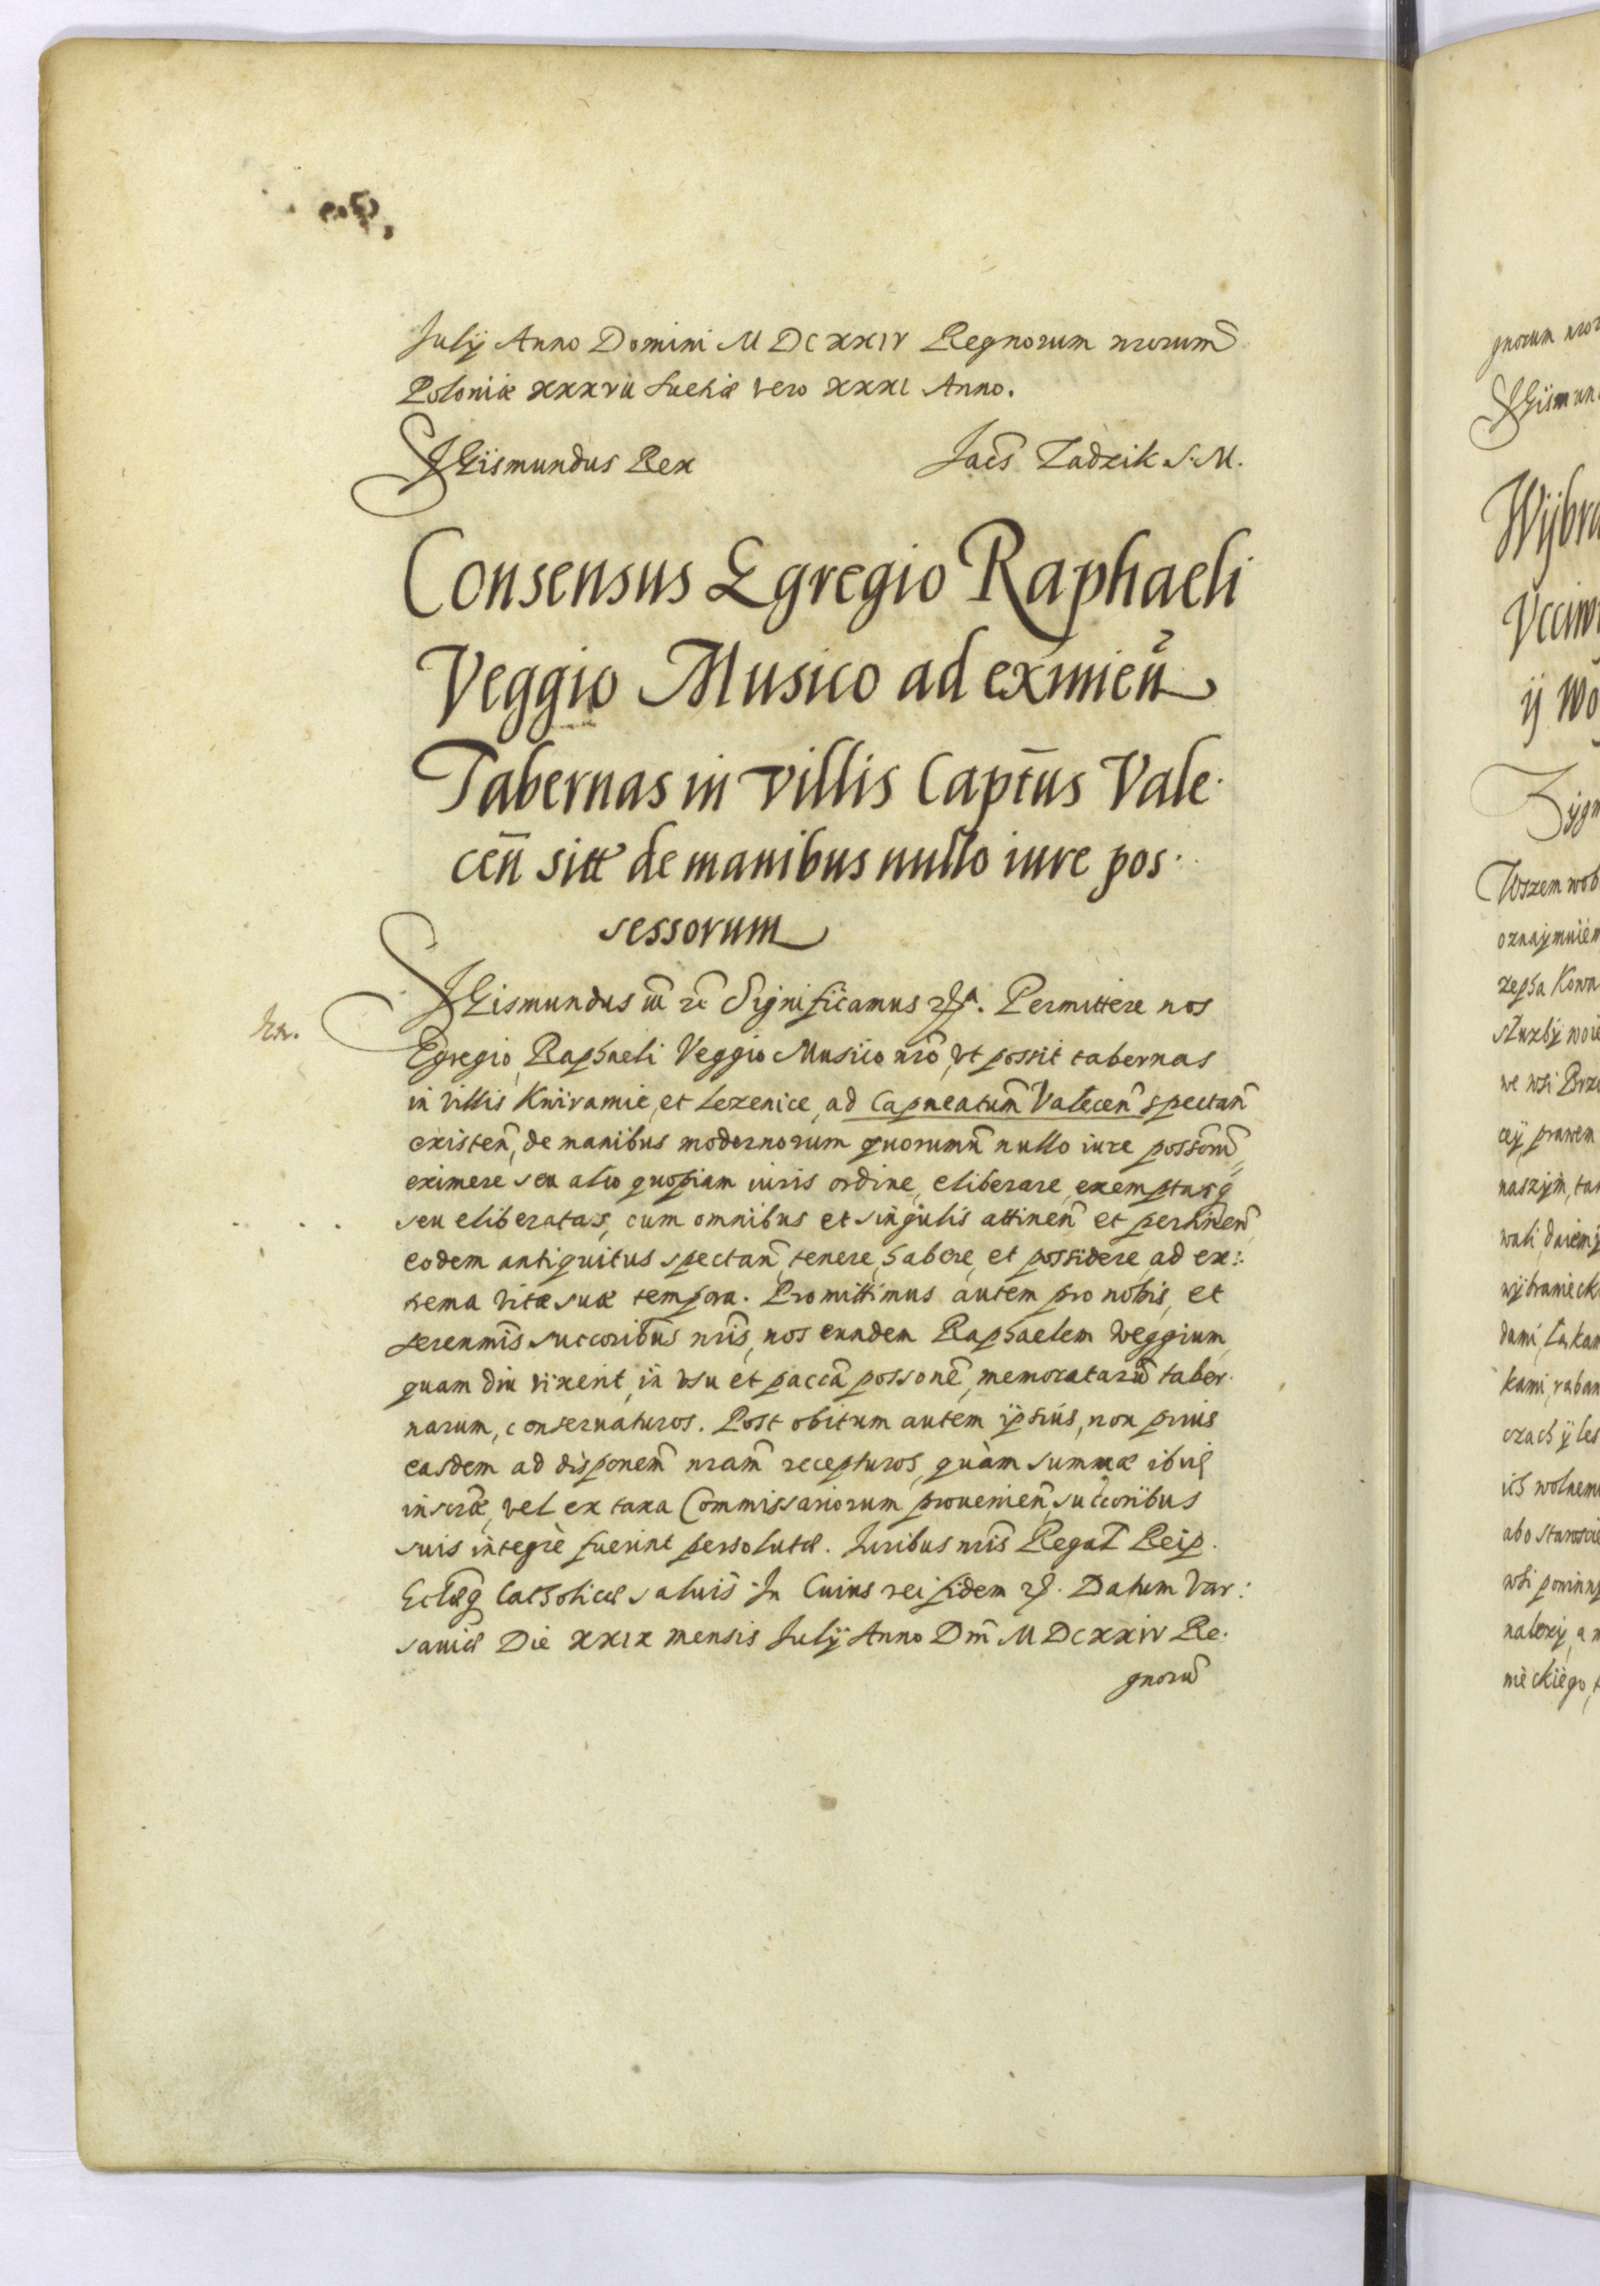 Julÿ Anno Domini MDCXXIV Regnorum nrorum̄
Poloniæ XXXVII Suetiæ vero XXXI Anno.
SGismundus Rex Jacs̄ Zadzik S.M.
Consensus Egregio Raphaeli
Veggio Musico ad eximien̄
Tabernas in villis Capt̄us Vale-
cen̄ sitt de manibus nullo iure pos-
sessorum
SGismundus iii Significamus Permittere nos
Egregio Raphaeli Veggio Musico nr̄o, vt possit tabernas
in villis Kniramie, et Lezenice, ad Capneatum̄ Valecen̄ spectan̄
existen̄, de manibus modernorum quorumun̄ nullo iure possorum̄
eximere seu alio quopiam iuris ordine, eliberare, exemptasq
seu eliberatas, cum omnibus et singulis attinen̄ et pertinen̄
eodem antiquitus spectan̄, tenere, habere, et possidere, ad ex:
trema vitæ suæ tempora. Promittimus autem pro nobis, et
serenmis̄ succoribus̄ nris̄, nos eundem Raphaelem Veggium,
quam diu vixerit, in vsu et paccā possonē, memoratarū taber-
narum, conseruaturos. Post obitum autem ipsius, non prius
easdem ad disponem̄ nram̄ recepturos, quàm summæ ibid
inscræ, vel ex taxa Commissariorum prouenien̄, succoribus
suis integrè fuerint persolutæ. Juribus nris̄ Regal̄ Reip.
Eccl̄æq Catholicæ saluis̄ Jn Cuius rei fidem Datum Var:
sauiæ Die XXIX mensis Julÿ Anno Dm̄ MDCXXIV Re-
gnorū
gnorum
SGismun
Wÿbra
ÿ Wo
Zÿgm
Wszem wob
oznaÿmuiem
zepha Kowa
służbÿ woie
we wsi Brze
ceÿ, prawem
naszÿm, tak
wali, daiemÿ
wÿbranieck
kami, raban
czach ÿ les
ich wolnem
abo starosci
wsi powinnÿ
nalezÿ, a
mèckiègo,